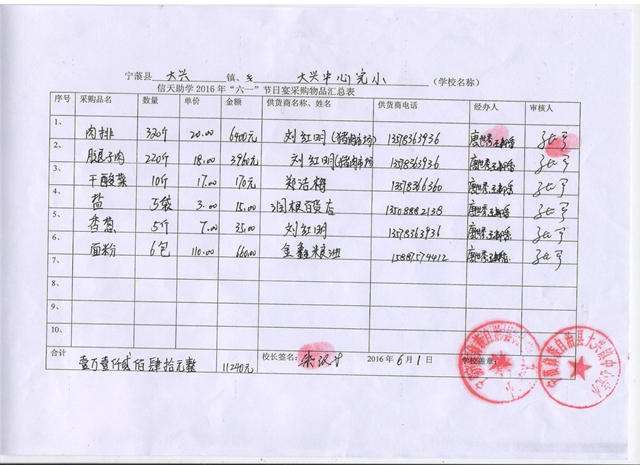 宁蒗县 大兴 镇、乡 大兴中心完小 （学校名称）
信天助学 2016 年“六一”节日宴采购物品汇总表
序号 采购品名 数量 单价 金额 供货商名称、姓名 供货商电话 经办人 审核人
1、 肉排 320斤 20.00 6400元 刘红明(猪肉市场) 13578363936
2、 220斤 18.00 3960元 刘红明(猪肉市场) 13578363936
3、 干酸菜 10斤 17.00 170元 郑洁梅 13578366360
4、 盐 5袋 3.00 15.00 百货店 13508882138
5、 香葱 5斤 7.00 35.00 刘红明 13578363936
6、 面粉 6包 110.00 660.00 金鑫粮 15887574412
7、
8、
9、
10、
合计 壹万壹仟贰佰肆拾元整 11240元 校长签名： 2016 年 6 月 1 日 学校盖章：